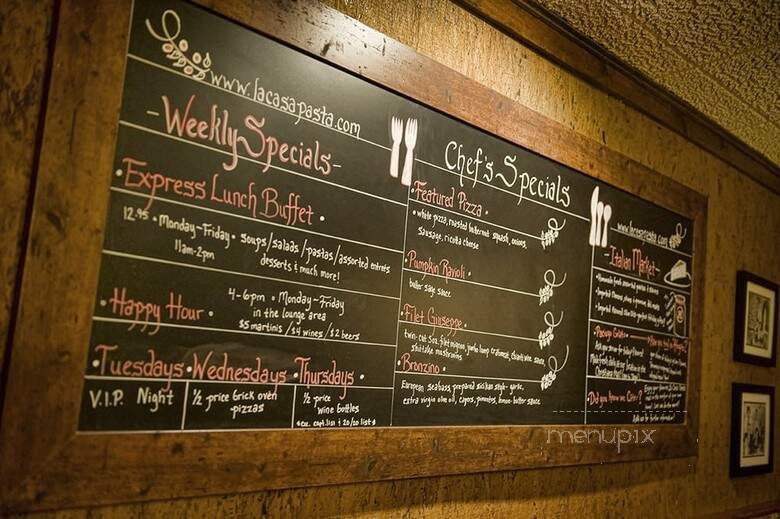 www.lacasapasta.com
-Weekly Specials-
•Express Lunch Buffet•
12.95 •Monday-Friday•
11am-2pm
soups/salads/pastas/assorted entrees
desserts & much more!
•Happy Hour•
4-6pm • Monday-Friday
in the lounge area
$5 martinis/$4 wines/$2 beers
•Tuesdays •Wednesdays •Thursdays•
V.I.P. Night
½ price brick oven
pizzas
½ price
wine bottles
*ex. capt. list & 20/20 list*
Chef's Specials
•Featured Pizza•
• white pizza, roasted butternut squash, onions
Sausage, ricotta cheese
•Pumpkin Ravioli•
butter sage sauce
•Filet Giuseppe•
shiitake mushrooms
Bronzino•
European seabass, prepared sicilian style - garlic,
extra virgin olive oil, capers, pimentos, lemon-butter sauce
www.lacasapasta.com
-Italian Market-
•Did you know we Cater?
menupix